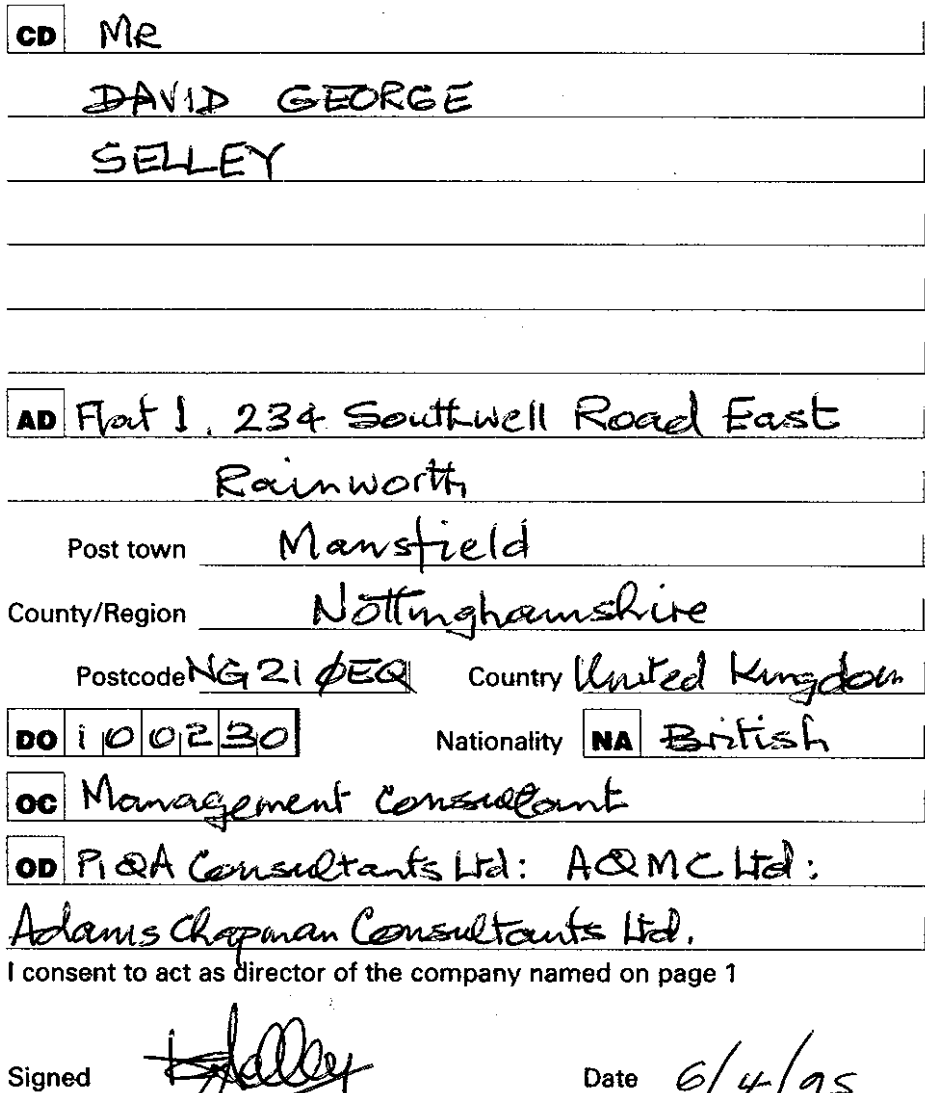 CD MR
DAVID GEORGE
SELLEY
AD Flat 1, 234 Southwell Road East
Rainworth
Post town Mansfield
County/Region Nottinghamshire
Postcode NG21 ØEQ Country United Kingdom
DO 100230 Nationality NA British
OC Management Consultant
OD PIQA Consultants Ltd: AQMC Ltd:
Adams Chapman Consultants Ltd.
I consent to act as director of the company named on page 1
Signed Date 6/4/95